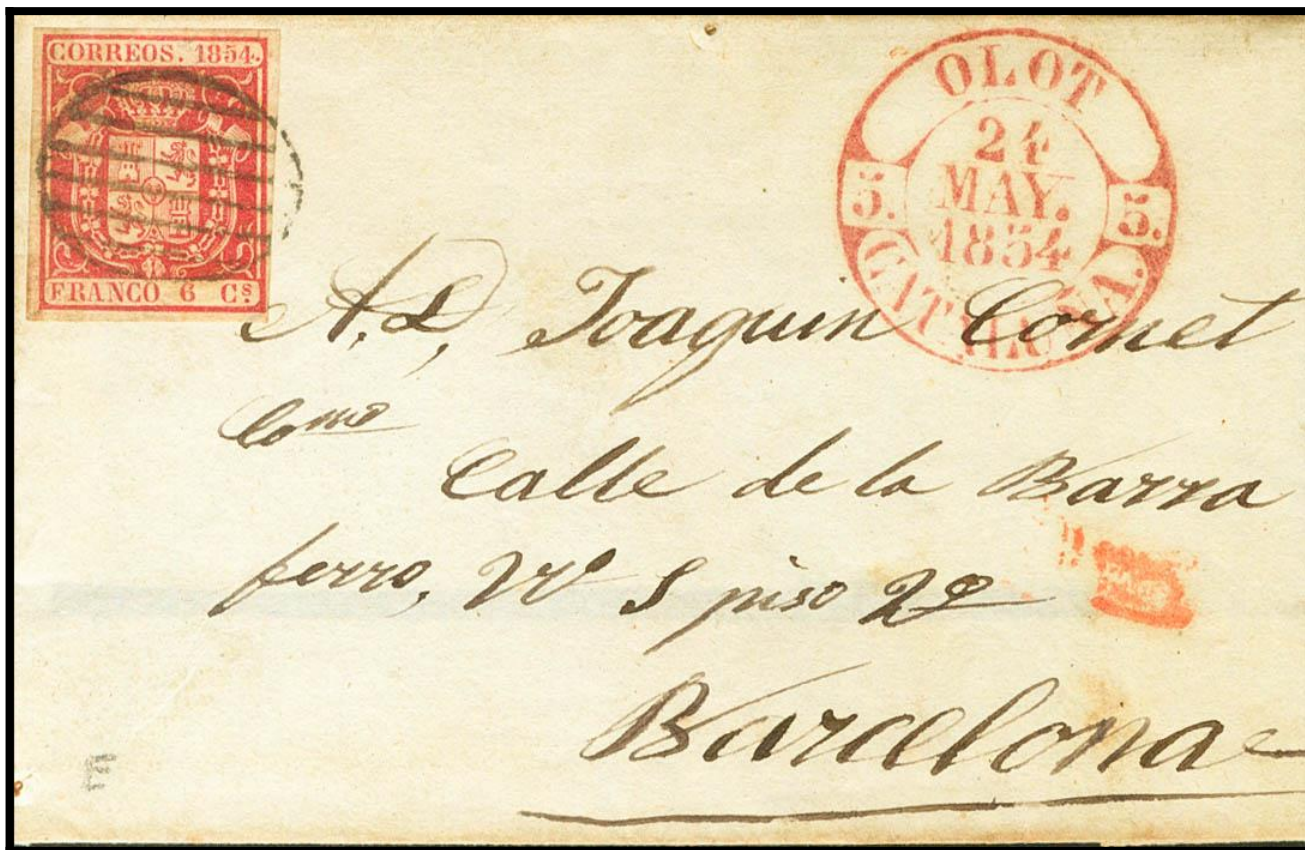 CORREOS. 1854.
FRANCO 6 Cs.
OLOT
24
MAY.
1854
5. 5.
CATALUÑA.
A. D. Joaquin Comet
Como
Calle de la Barra
ferro, Nº 5 piso 2º
Barcelona
E